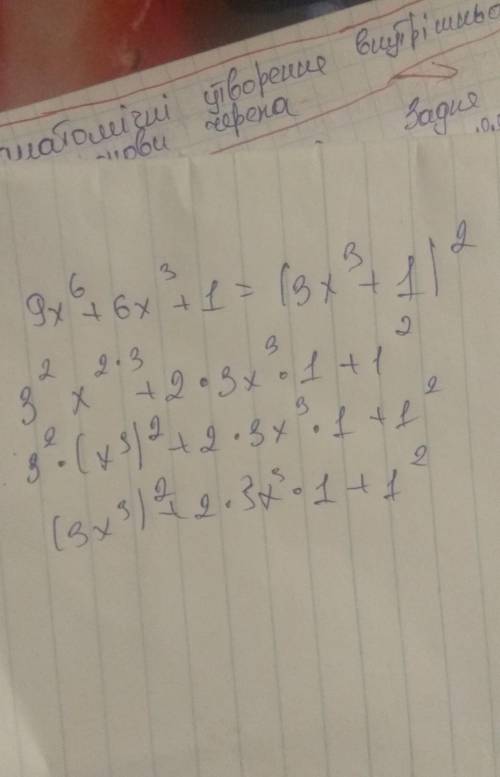 утворення внутрішньо
черепа Задня
9x⁶ + 6x³ + 1 = (3x³ + 1)²
3² x²·³ + 2 · 3x³ · 1 + 1²
3² · (x³)² + 2 · 3x³ · 1 + 1²
(3x³)² + 2 · 3x³ · 1 + 1²